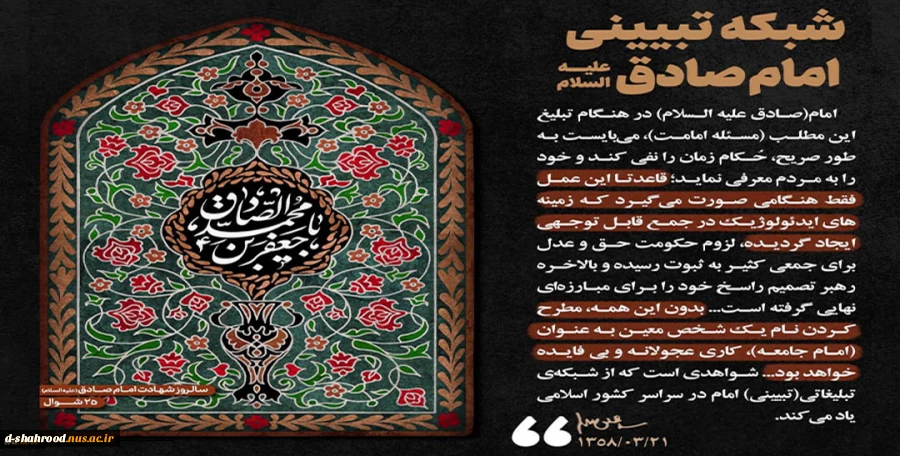 شبکه تبیینی
امام صادق علیه السلام
امام(صادق علیه السلام) در هنگام تبلیغ
این مطلب (مسئله امامت)، می‌بایست به
طور صریح، حُکام زمان را نفی کند و خود
را به مردم معرفی نماید؛ قاعدتا این عمل
فقط هنگامی صورت می‌گیرد که زمینه
های ایدئولوژیک در جمع قابل توجهی
ایجاد گردیده، لزوم حکومت حق و عدل
برای جمعی کثیر به ثبوت رسیده و بالاخره
رهبر تصمیم راسخ خود را برای مبارزه‌ای
نهایی گرفته است... بدون این همه، مطرح
کردن نام یک شخص معین به عنوان
(امام جامعه)، کاری عجولانه و بی فایده
خواهد بود... شواهدی است که از شبکه‌ی
تبلیغاتی(تبیینی) امام در سراسر کشور اسلامی
یاد می کند.
۱۳۵۸/۰۳/۲۱
یا جعفر بن محمد الصادق
سالروز شهادت امام صادق (علیه السلام)
۲۵ شوال
d-shahrood.nus.ac.ir